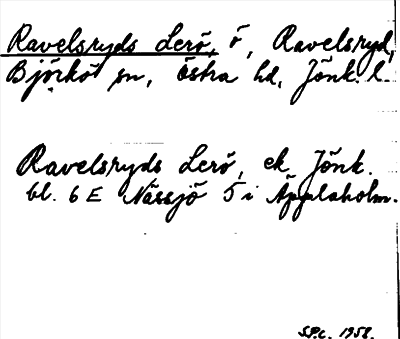 Ravelsryds Lerö, ö, Ravelsryd,
Björkö sn, Östra hd, Jönk. l.
Ravelsryds Lerö, ek. Jönk.
bl. 6 E Nässjö 5 i Äpplaholm.
S.P.c. 1958.